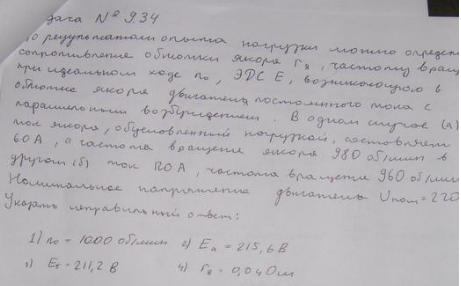 дача № 9.34
По результатам опыта нагрузки можно определ
сопротивление обмотки якоря rя, частоту враще
при идеальном ходе n₀, ЭДС E, возникающую в
обмотке якоря двигателя постоянного тока с
параллельным возбуждением. В одном случае (а)
ток якоря, обусловленный нагрузкой, составляет
60 А, а частота вращения якоря 980 об/мин в
другом (б) ток 120 А, частота вращения 960 об/мин
Номинальное напряжение двигателя Uном = 220
Указать неправильный ответ:
1) n₀ = 1000 об/мин 2) Eа = 215,6 В
3) Eб = 211,2 В 4) rя = 0,04 Ом